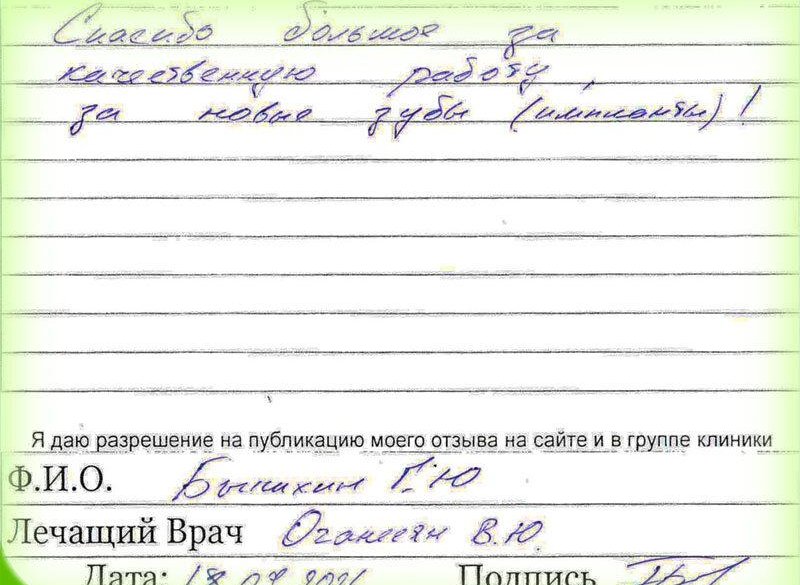 Спасибо большое за
качественную работу
за новые зубы (импланты)!
Я даю разрешение на публикацию моего отзыва на сайте и в группе клиники
Ф.И.О. Г.Ю
Лечащий Врач Оганесян В.Ю.
Дата: Подпись